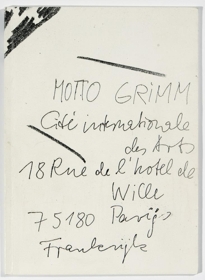 MOTTO GRIMM
Cité internationale
des Arts
18 Rue de l'hotel de
Wille
75180 Parijs
Frankrijk